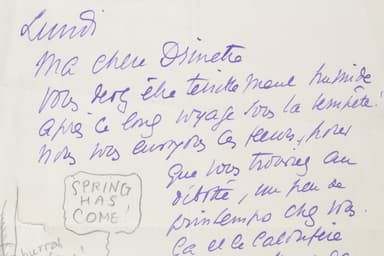 Lundi
Ma chere
vous devez être humide
après ce long voyage sous la tempête!
nous vous envoyons ces fleurs, pour
que vous trouviez au
débotté, un peu de
printemps chez vous.
Ça et le Calorifère
SPRING
HAS
COME!
hurrah